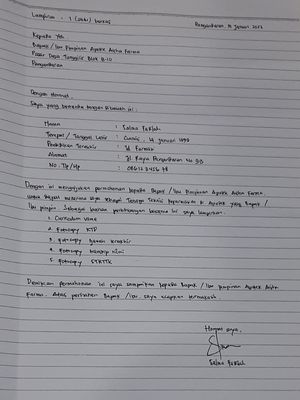 Lampiran : 1 (satu) berkas
Pangandaran, 14 Januari 2022
Kepada Yth.
Bapak / Ibu Pimpinan Apotek Aisha Farma
Pasar Desa Tunggilis Blok B.10
Pangandaran
Dengan Hormat,
Saya yang bertanda tangan dibawah ini :
Nama : Salma
Tempat / Tanggal Lahir : Ciamis, 14 Januari
Pendidikan Terakhir : Farmasi
Alamat : Jl. Raya Pangandaran No
No. Tlp / Hp :
Dengan ini mengajukan permohonan kepada Bapak / Ibu Pimpinan Apotek Aisha Farma,
untuk dapat menerima saya sebagai Tenaga Teknis Kefarmasian di Apotek yang Bapak /
Ibu pimpin. Sebagai bahan pertimbangan bersama ini saya lampirkan :
1. Curiculum Vitae
2. Fotocopy KTP
3. Fotocopy Ijazah terakhir
4. Fotocopy transkip nilai
5. Fotocopy STRTTK
Demikian permohonan ini saya sampaikan kepada Bapak / Ibu Pimpinan Apotek Aisha
Farma. Atas perhatian Bapak / Ibu, saya ucapkan terimakasih.
Hormat saya,
Salma